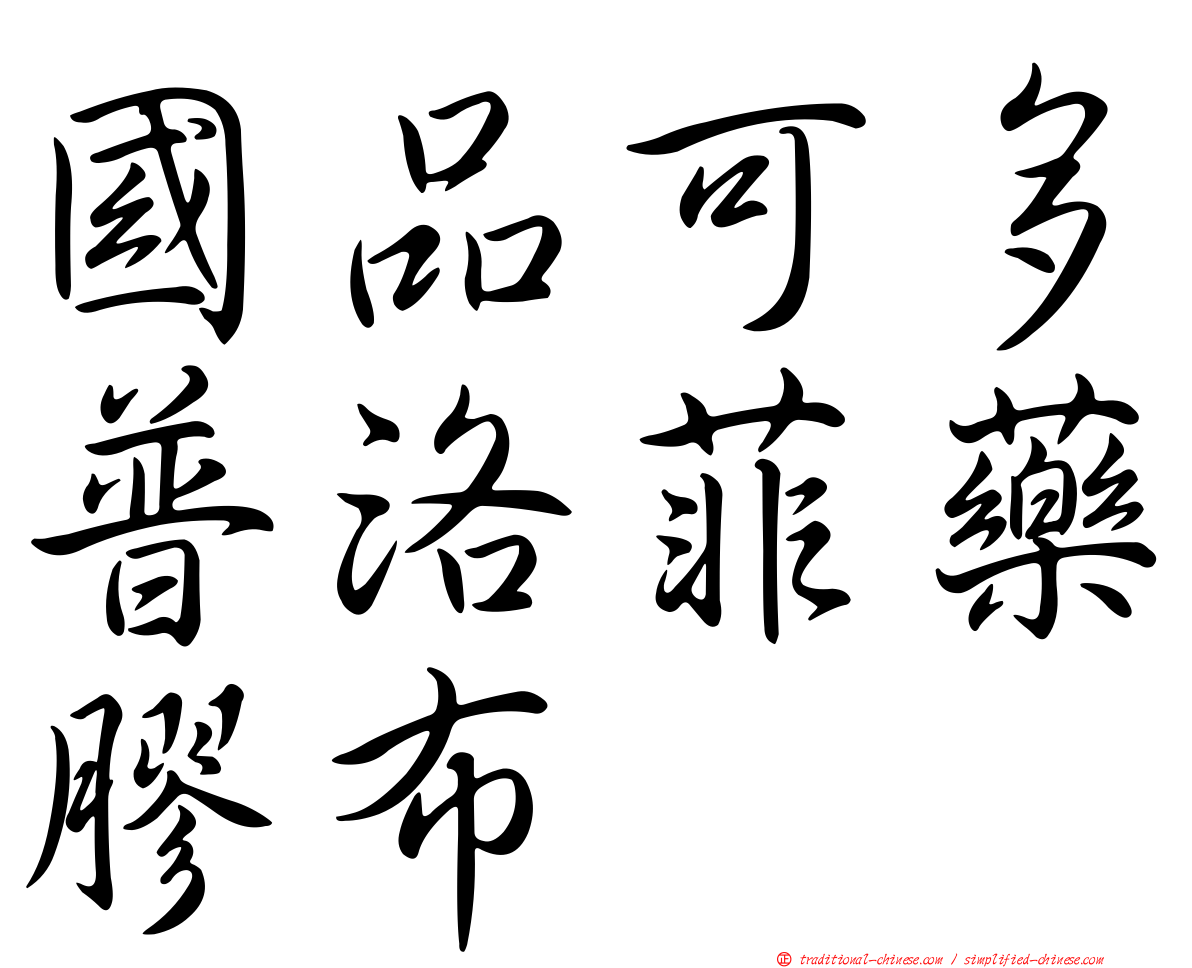 國品可多
普洛菲藥
膠布
正 traditional-chinese.com / simplified-chinese.com